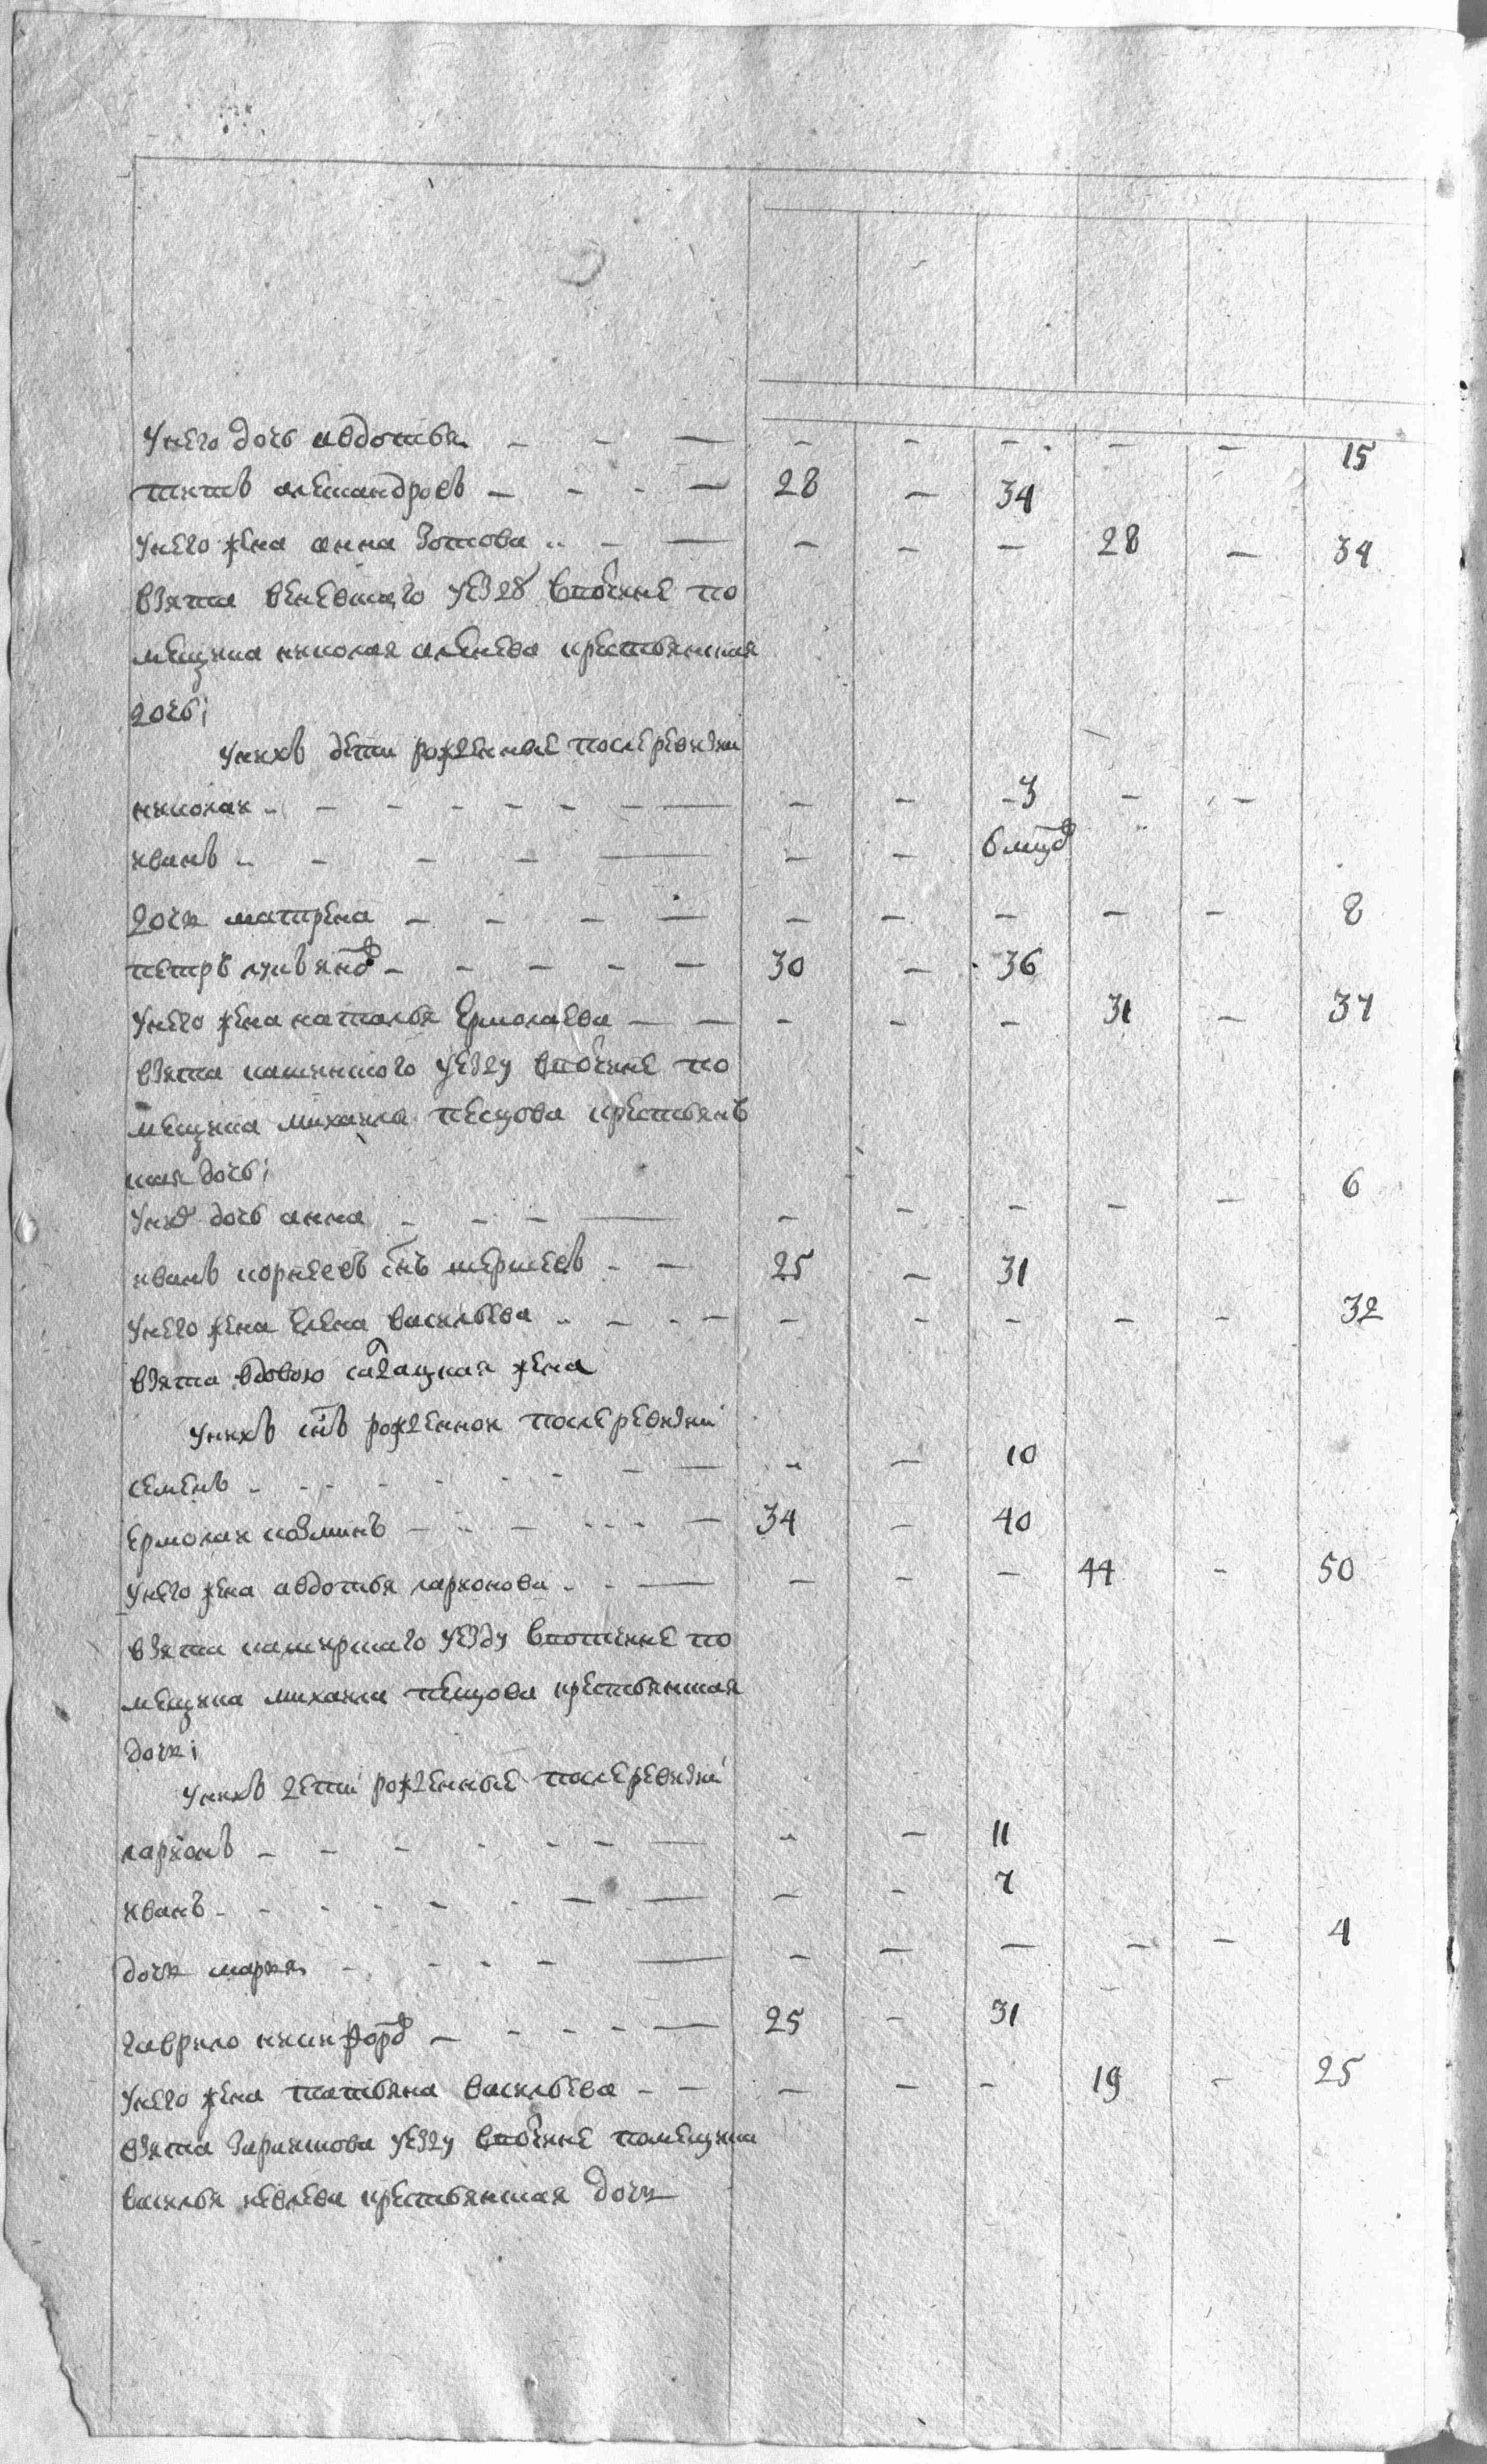 Унего дочь авдотья - - - - - - - - 15
титъ алеѯандровъ - - - - 28 - 34
Унего жена анна Зотова - - - - - - 28 - 34
взята веневского уезду вотчине по
мещика николая крестьянская
дочь;
Унихъ дети рожденные после ревизии
николай - - - - - - - - - 3 - -
иванъ - - - - - - 6 мцов
дочи матрена - - - - - - - - - 8
петръ - - - - - 30 - 36
Унего жена наталья Ермолаева - - - - - 31 - 37
взята каширского уезду вотчине по
мещика михаила пестова крестьянъ
ская дочь;
Унихъ дочь анна - - - - - - - - - 6
иванъ корнеевъ снъ - - 25 - 31
Унего жена Елена васильева - - - - - - - - - 32
взята вдовою салдацкая жена
Унихъ снъ рожденной после ревизии
семенъ - - - - - - - - - - 10
Ермолай козминъ - - - - - - 34 - 40
Унего жена авдотья ларионова - - - - - - 44 - 50
взята каширского уезду вотчине по
мещика михаила пестова крестьянская
дочи;
Унихъ дети рожденные после ревизии
ларионъ - - - - - - - - - 11
иванъ - - - - - - - - - 7
дочи марья - - - - - - - - - - 4
гаврило никифоровъ - - - - - 25 - 31
Унего жена татьяна васильева - - - - - 19 - 25
взята Зарайскова уезду вотчине помещика
василья крестьянская дочи